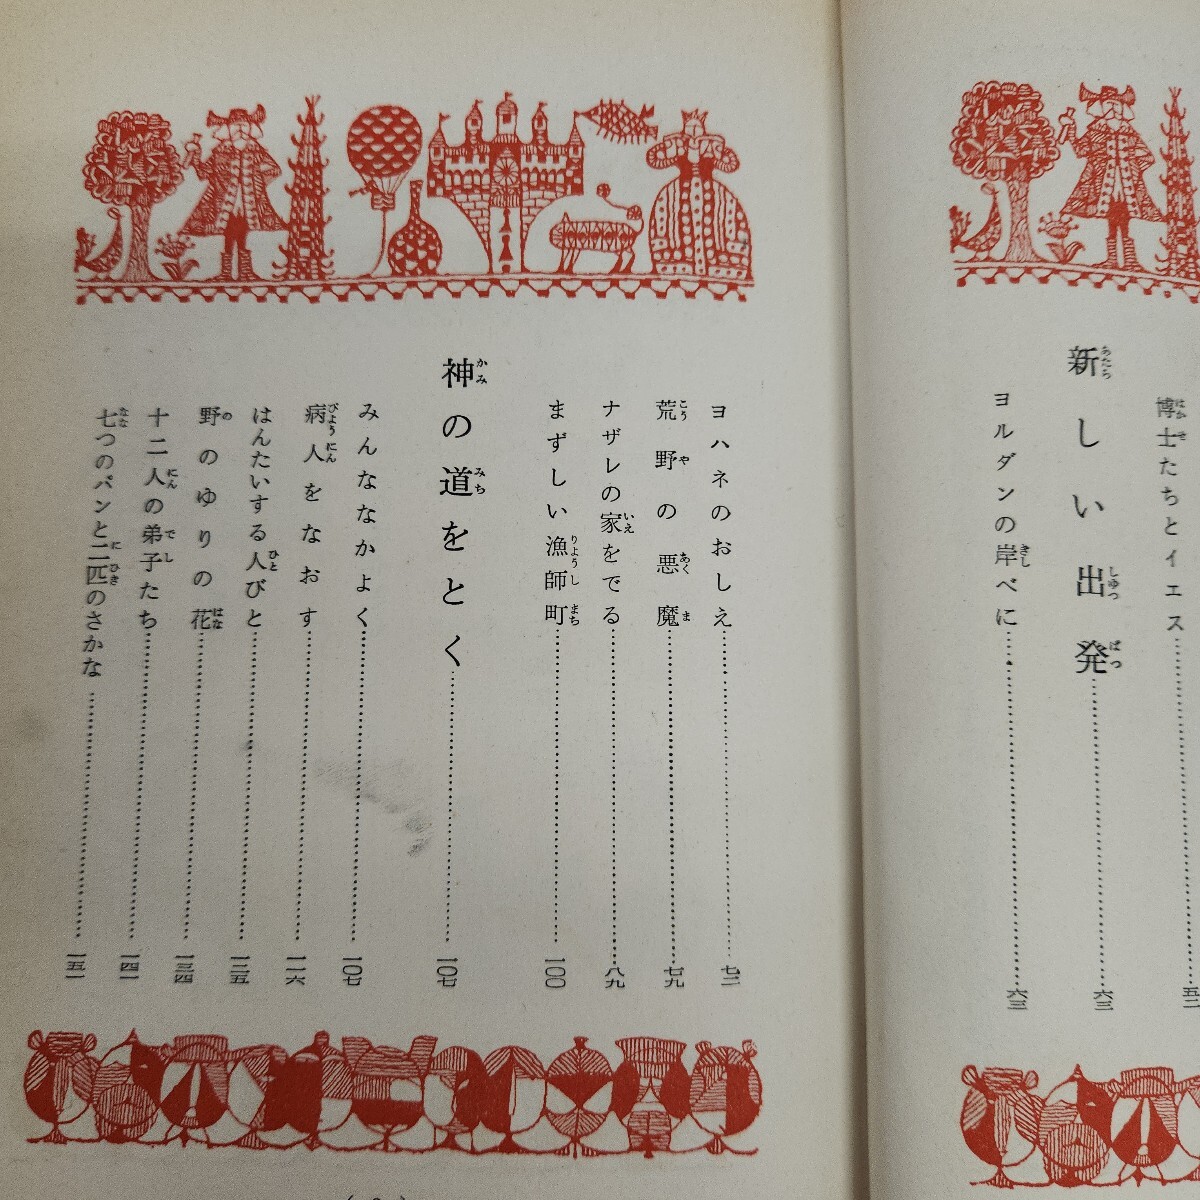 博士たちとイエス……五二
新しい出発……六三
ヨルダンの岸べに……六三
ヨハネのおしえ……七二
荒野の悪魔……七九
ナザレの家をでる……八九
まずしい漁師町……一〇〇
神の道をとく……一〇七
みんななかよく……一〇七
病人をなおす……一一六
はんたいする人びと……一二五
野のゆりの花……一三四
十二人の弟子たち……一四一
七つのパンと二匹のさかな……一五一